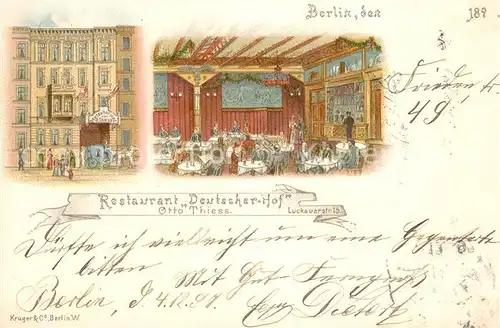 Berlin, den 189
49
Restaurant „Deutscher-Hof"
Otto Thiess. Luckauerstr. 15.
Dürfte ich vielleicht um eine
bitten Mit Gut
Berlin, d 4.12.97
Kruger & Co, Berlin W.